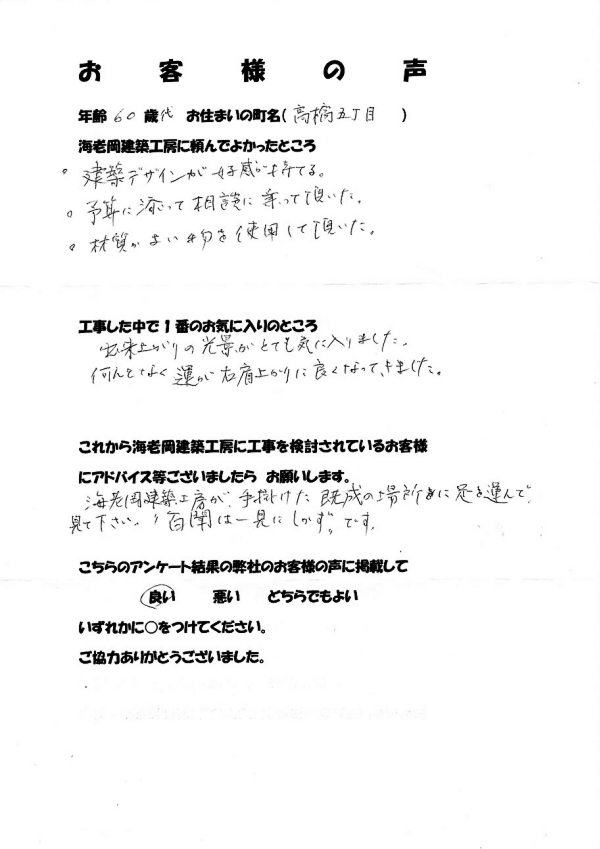 お客様の声
年齢 60 歳代 お住まいの町名( 高橋五丁目 )
海老岡建築工房に頼んでよかったところ
。建築デザインが好感が持てる。
。予算に添って相談に乗って頂いた。
。材質がよい物を使用して頂いた。
工事した中で1番のお気に入りのところ
出来上がりの光景がとても気に入りました。
何んとなく運が右肩上がりに良くなってきました。
これから海老岡建築工房に工事を検討されているお客様
にアドバイス等ございましたら お願いします。
海老岡建築工房が、手掛けた既成の場所めに足を運んで、
見て下さい。〃百聞は一見にしかず〃です。
こちらのアンケート結果の弊社のお客様の声に掲載して
良い 悪い どちらでもよい
いずれかに○をつけてください。
ご協力ありがとうございました。